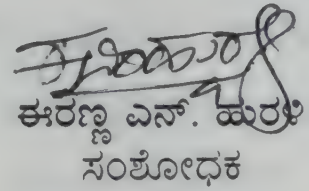 ಈರಣ್ಣ ಎನ್. ಹುರಳಿ
ಸಂಶೋಧಕ